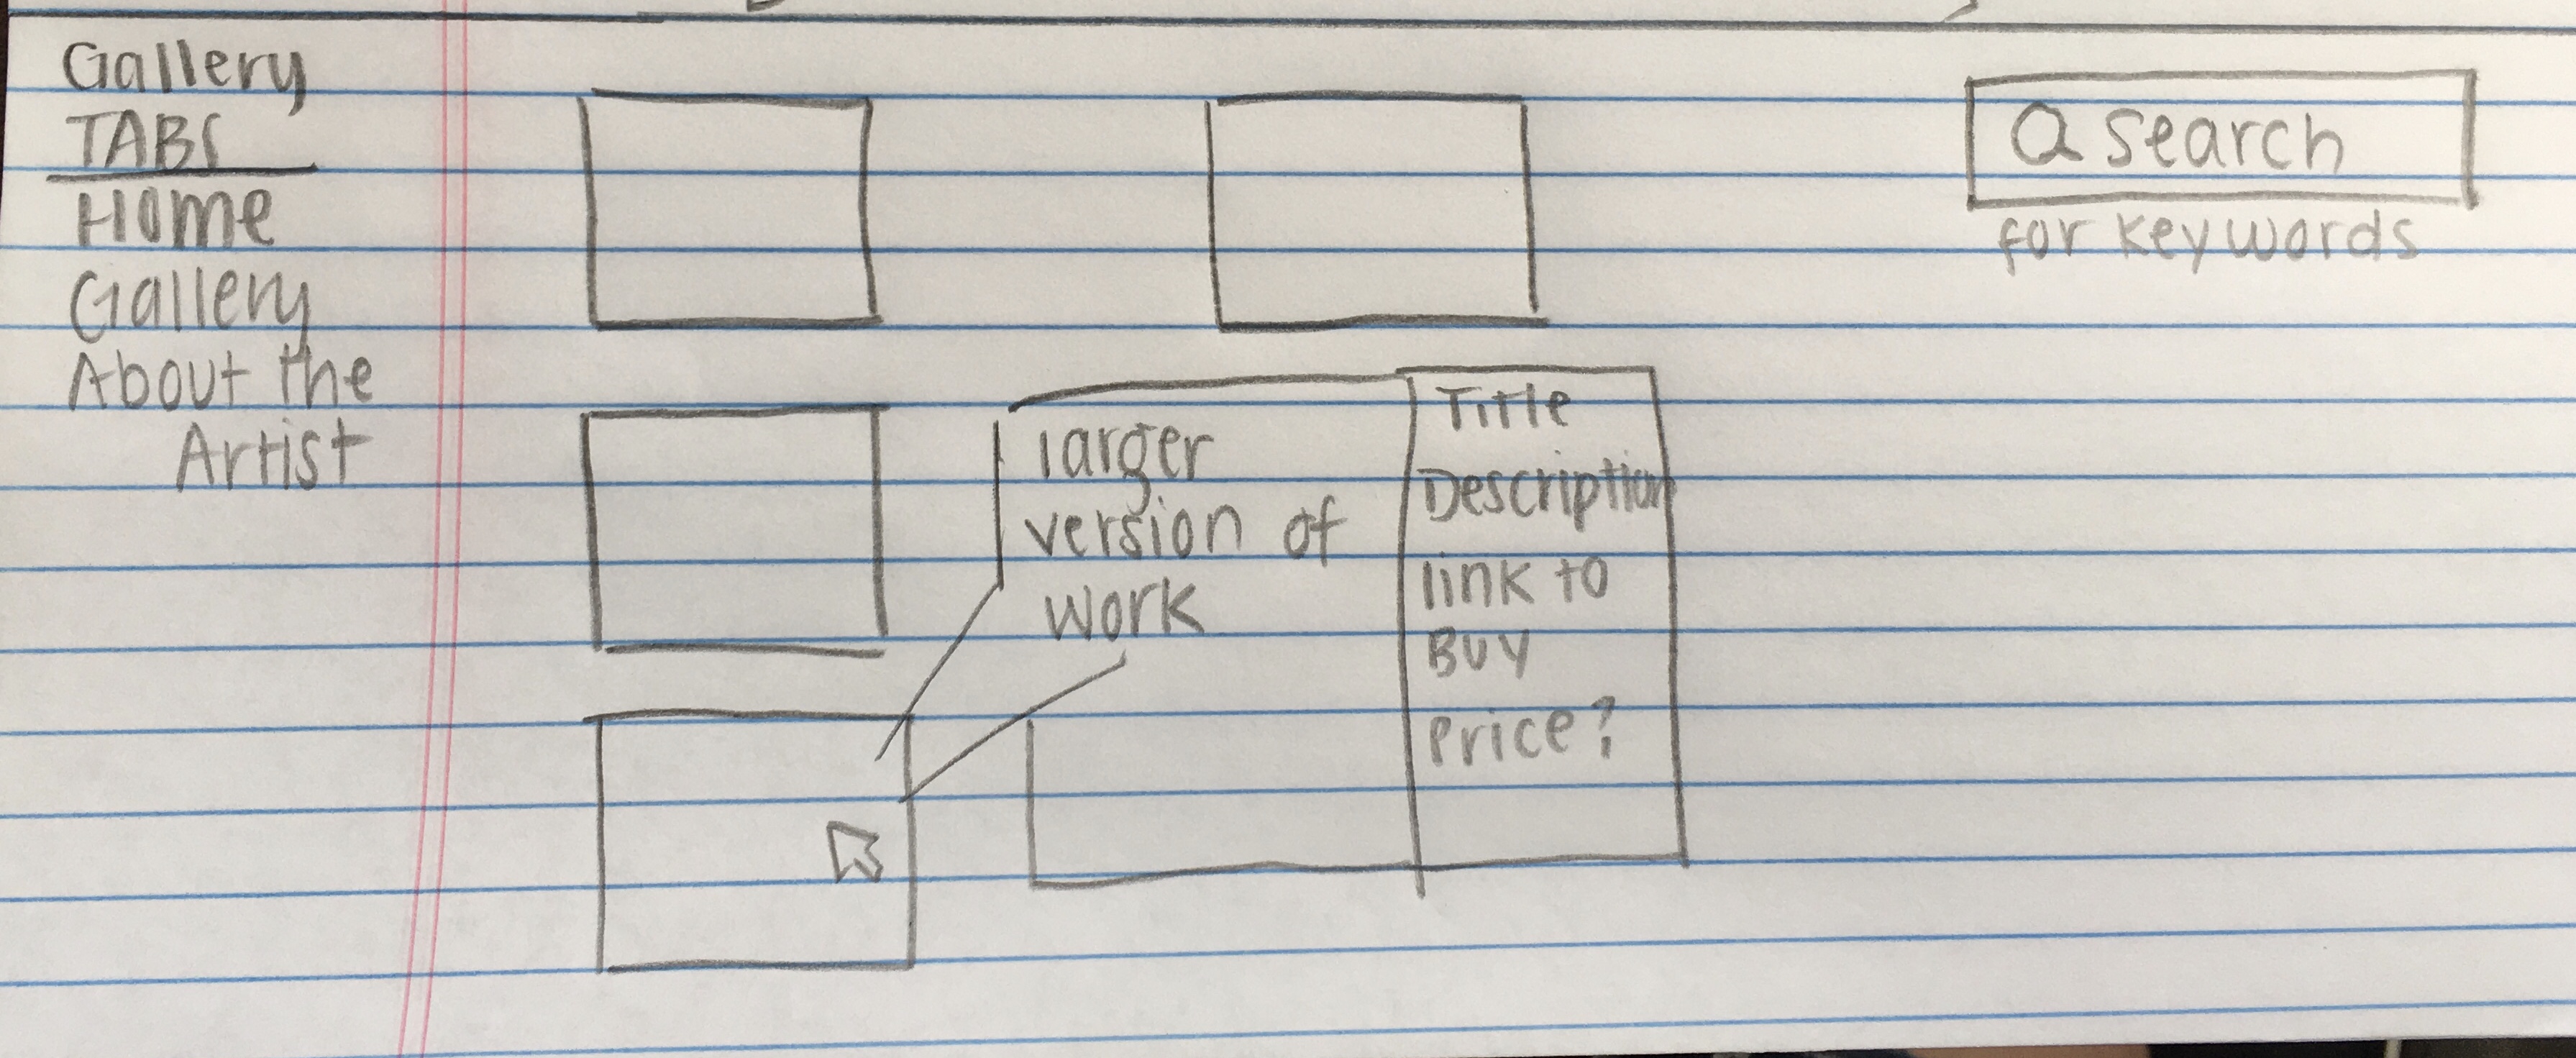 Gallery
TABS
Home
Gallery
About the
Artist
Search
for keywords
larger
version of
work
Title
Description
link to
Buy
Price?